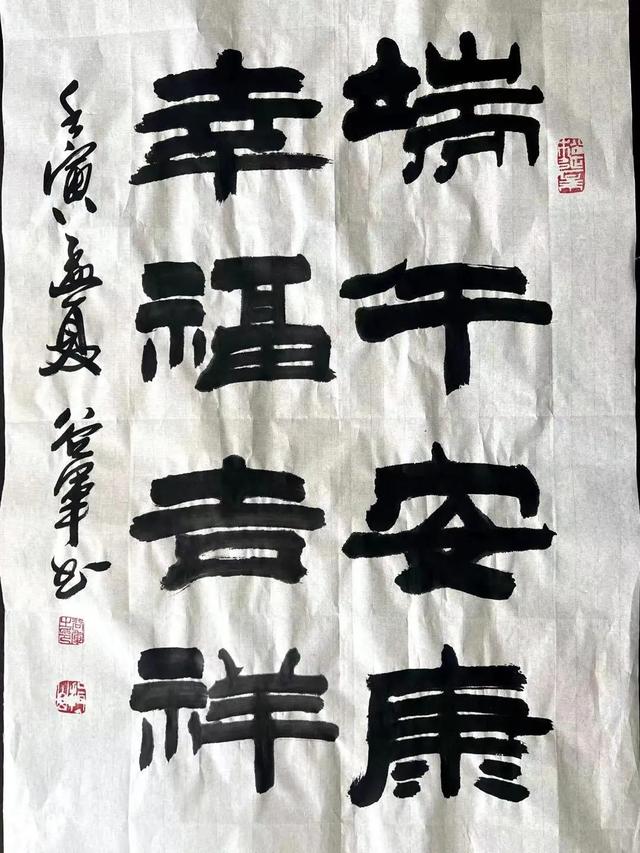 端午安康
幸福吉祥
壬寅孟夏 谷军书